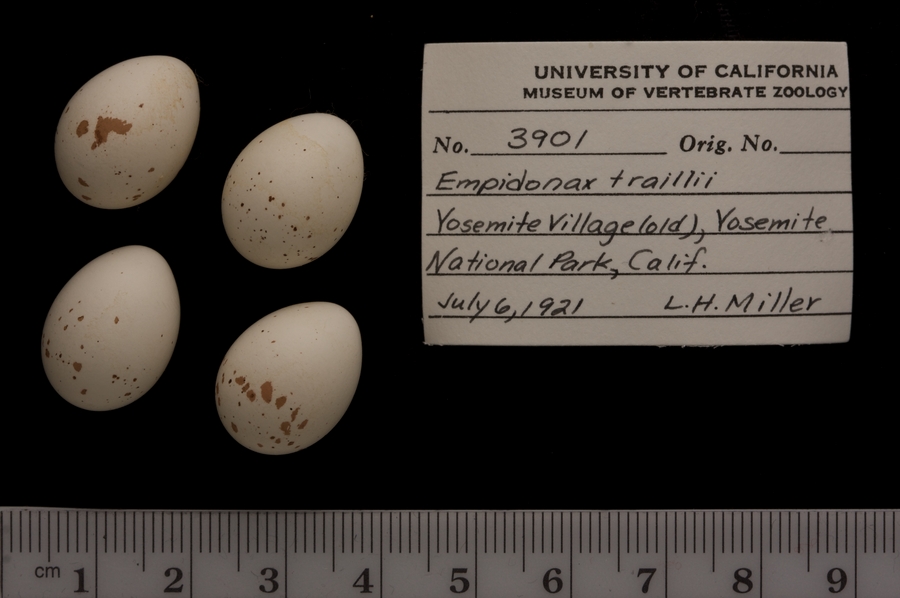 UNIVERSITY OF CALIFORNIA
MUSEUM OF VERTEBRATE ZOOLOGY
No. 3901 Orig. No.
Empidonax traillii
Yosemite Village (old), Yosemite
National Park, Calif.
July 6, 1921 L.H. Miller
cm 1 2 3 4 5 6 7 8 9